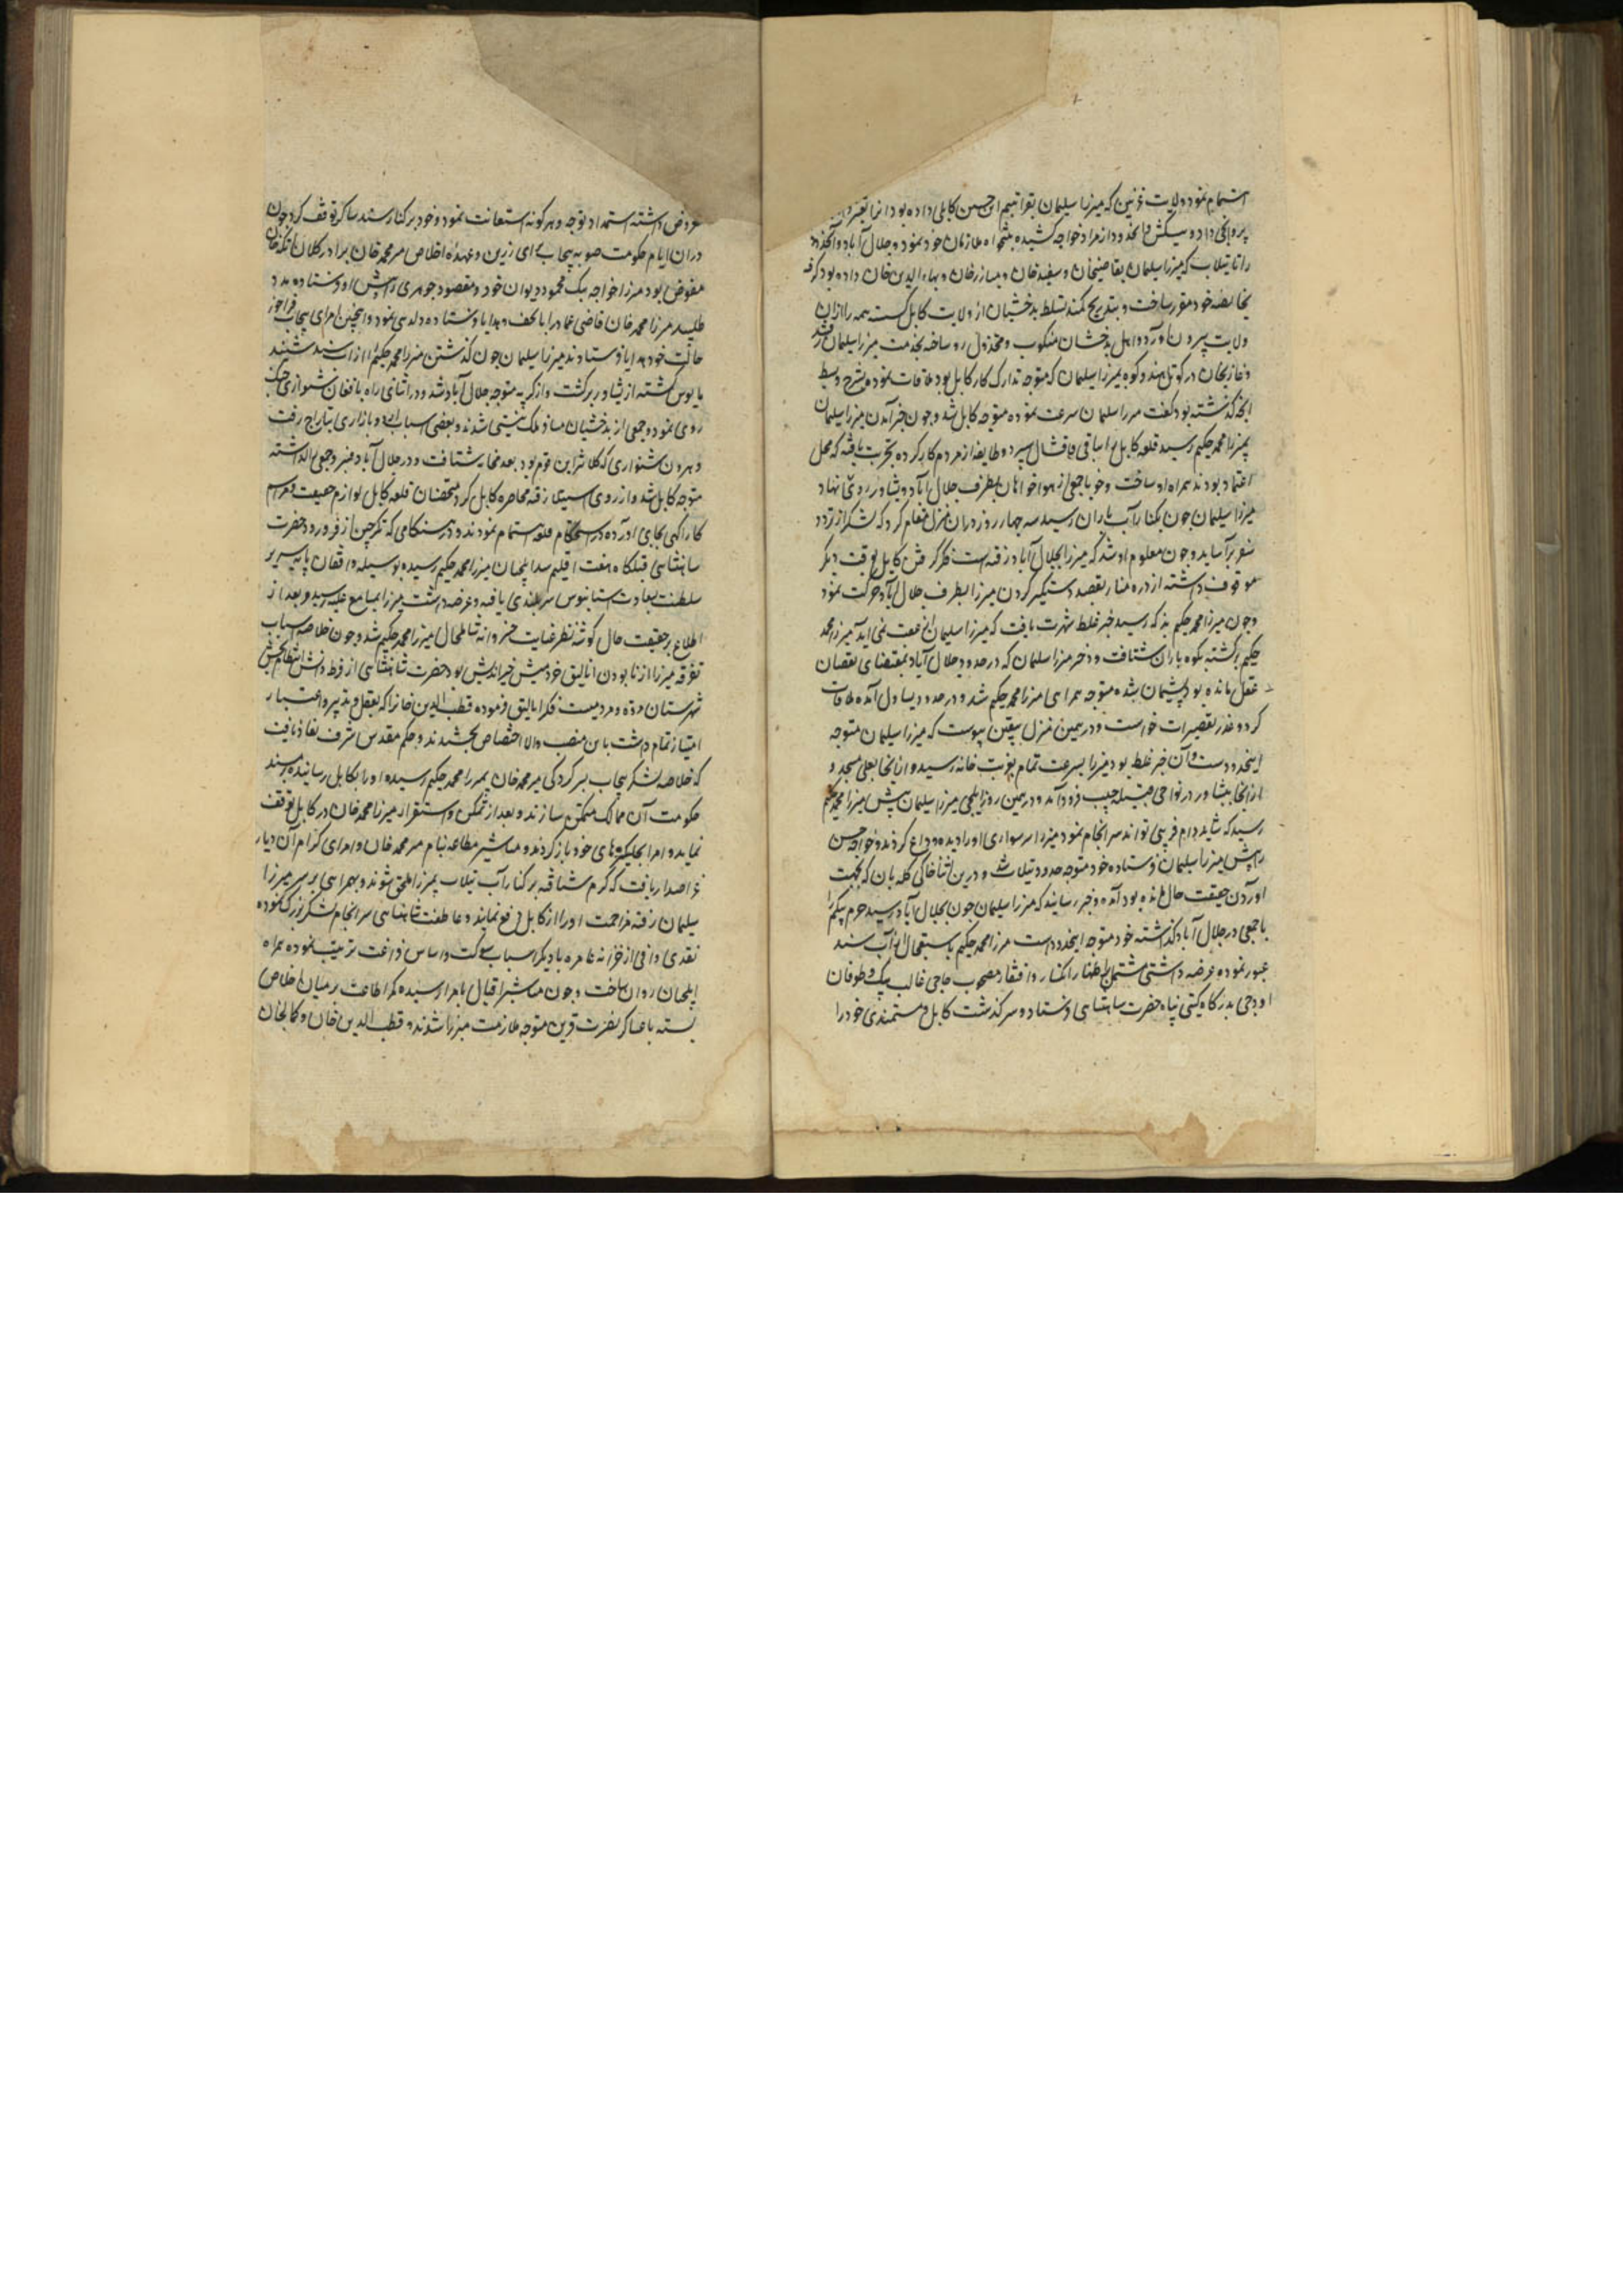 اهتمام نمود ولایت غزنین که میرزا سلیمان بقرایتیم ابن حسین کابلی داده بود
پروانکی داده و خواجه کشیده بتنخواه ملازمان خود نمود و جلال آباد و
را تا نیلاب که میرزا سلیمان بقاضیخان و سفیدخان و مبارزخان و بهاءالدین خان داده بود گرفته
بخالصه خود مقرر ساخت و بتدریج کمند تسلط بدخشیان از ولایت کابل کسسته همه را ازان
ولایت بیرون آورد و اهل بدخشان منکوب و مخذول رو ساخته بخدمت میرزا سلیمان رفتند
و غازیخان در کوتل هندوکوه بمیرزا سلیمان که متوجه تدارک کار کابل بود ملاقات نموده بشرح و بسط
آنچه گذشته بود گفت میرزا سلیمان سرعت نموده متوجه کابل شد و چون خبر آمدن میرزا سلیمان
بمیرزا محمد حکیم رسید قلعه کابل را بباقی قاقشال سپرد و طایفه از مردم کار کرده تجربت یافته که محل
اعتماد بودند همراه او ساخت و خود با جمعی از هواخواهان بطرف جلال آباد و پشاور روی نهاد
میرزا سلیمان چون بکنار آب باران رسید سه چهار روز دران منزل مقام کرد که لشکر از تردد
سفر برآساید و چون معلوم او شد که میرزا بجلال آباد رفته است فکر گرفتن کابل بوقت دیگر
موقوف داشته از دره بقصد دستگیر کردن میرزا بطرف جلال آباد حرکت نمود
و چون میرزا محمد حکیم رسید خبر غلط شهرت یافت که میرزا سلیمان از عقب نمی آید میرزا محمد
حکیم برگشته بکوه باران شتافت و دختر میرزا سلیمان که در حدود جلال آباد بمقتضای نقصان
عقل مانده بود پشیمان شده متوجه همراهی میرزا محمد حکیم شد و در حدود بساول آمده ملاقات
کرد و عذر تقصیرات خواست و در همین منزل بیقین پیوست که میرزا سلیمان متوجه
اینحدود است و آن خبر غلط بود میرزا بسرعت تمام بغریب خانه رسید و از آنجا بعلی مسجد و
از آنجا بپشاور در نواحی فرود آمد و در همین روز ایلچی میرزا سلیمان پیش میرزا محمد حکیم
رسید که شاید دام فریبی تواند سرانجام نمود میرزا سر سواری او را دیده وداع کردند و خواجه حسن
را پیش میرزا سلیمان فرستاده خود متوجه حدود نیلاب شد و درین اثنا خاکی گله بان که بجهت
آوردن حقیقت حال مانده بود آمده خبر رسانید که میرزا سلیمان چون بجلال آباد رسید حرم بیگم را
با جمعی در جلال آباد گذاشته خود متوجه اینحدود است میرزا محمد حکیم باستعجال از آب سند
عبور نموده عرضه داشتی مشتمل بر اظهار انکسار و افتقار مصحوب حاجی غالب بیگ و طوفان
اوجی بدرگاه گیتی پناه حضرت شاهنشاهی فرستاد و سرگذشت کابل و مستمندی خود را
معروض داشته استمداد توجه و هر گونه استعانت نمود و خود بر کنار سند ساکر توقف کرد و چون
دران ایام حکومت صوبه پنجاب برای رزین و عهده اخلاص میر محمد خان برادر کلان اتکه خان
مفوض بود میرزا خواجه بیک محمود دیوان خود و مقصود جوهری را پیش او فرستاده مدد
طلبید میرزا محمد خان قاضی عماد را با تحف و هدایا فرستاده دلدهی نمود و همچنین امرای پنجاب فراخور
حالت خود هدایا فرستادند میرزا سلیمان چون گذشتن میرزا محمد حکیم را از آب سند شنید
مایوس گشته از پشاور برگشت و از متوجه جلال آباد شد و در اثنای راه با افغان شنواری جنگ
روی نمود و جمعی از بدخشیان مسافر ملک نیستی شدند و بعضی اسباب اردو بازاری بتاراج رفت
و هرون شنواری که کلانتر این قوم بود بعد شتافت و در جلال آباد قنبر و جمعی را گذاشته
متوجه کابل شد و از روی استیلا رفته محاصره کابل کرد متحصنان قلعه کابل لوازم جمعیت و مراسم
کارآگهی بجای آورده در استحکام قلعه اهتمام نمودند و در هنگامی که نگرچین از فر ورود حضرت
شاهنشاهی قبله گاه هفت اقلیم شد ایلچیان میرزا محمد حکیم رسیده بوسیله واقفان پایه سریر
سلطنت بسعادت آستانبوس سربلندی یافته و عرضه داشت میرزا بمسامع علیه رسید و بعد از
اطلاع بر حقیقت حال گوشه نظر عنایت خسروانه شامل حال میرزا محمد حکیم شد و چون خلاصه اسباب
تفرقه میرزا از نابودن اتالیق خردمنش خیراندیش بود حضرت شاهنشاهی از فرط دانش انتظام بخش
شهرستان مروت و مردمیست فکر اتالیق فرموده قطب الدین خان را که بعقل و تدبیر و اعتبار
امتیاز تمام داشت باین منصب والا اختصاص بخشیدند و حکم مقدس شرف نفاذ یافت
که خلاصه لشکر پنجاب بسرکردگی میر محمد خان بمیرزا محمد حکیم رسیده او را بکابل رسانیده بر مسند
حکومت آن ممالک متمکن سازند و بعد از تمکن و استقرار میرزا محمد خان در کابل توقف
نماید و امرا بجایگیرهای خود باز گردند و مناشیر مطاعه بنام میر محمد خان و امرای کرام آن دیار
عز اصدار یافت که گرم شتافته بر کنار آب نیلاب بمیرزا ملحق شوند و بهمراهی بر سر میرزا
سلیمان رفته مزاحمت او را از کابل دفع نمایند و عاطفت شاهنشاهی سرانجام لشکر بزرگ نموده
نقدی وافی از خزانه عامره با دیگر اسباب شوکت و اساس فراغت ترتیب نموده همراه
ایلچیان روان ساخت و چون مناشیر اقبال بامرا رسید کمر اطاعت بر میان اخلاص
بسته با عساکر نصرت قرین متوجه ملازمت میرزا شدند و قطب الدین خان و کمالخان